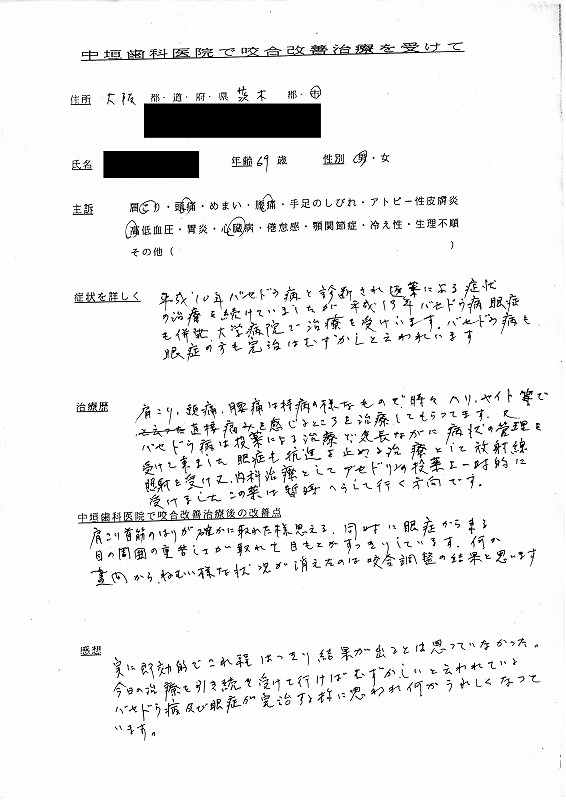 中垣歯科医院で咬合改善治療を受けて
住所 大阪 都・道・府・県 茨木 郡・市
氏名 年齢 69 歳 性別 男・女
主訴 肩こり・頭痛・めまい・腰痛・手足のしびれ・アトピー性皮膚炎
高低血圧・胃炎・心臓病・倦怠感・顎関節症・冷え性・生理不順
その他( )
症状を詳しく 平成10年バセドウ病と診断され投薬による症状
の治療を続けていましたが平成19年バセドウ病眼症
も併発 大学病院で治療を受けています。バセドウ病も
眼症の方も完治はむずかしと云われています
治療歴 肩こり、頭痛、腰痛は持病の様なもので時々ハリ、サイト等で
直接痛みを感じるところを治療してもらってます。又
バセドウ病は投薬による治療で気長ながに病状の管理を
受けて来ました 眼症も抗進を止める治療として放射線
照射を受け又、内科治療として の投薬を一時的に
受けましたこの薬は暫時へらして行く方向です。
中垣歯科医院で咬合改善治療後の改善点
肩こり首筋のはりが確かに取れた様思える、同時に眼症から来る
目の周囲の重苦しさが取れて目もとがすっきりしています。何か
昼間から、ねむい様な状況が消えたのは咬合調整の結果と思います
感想 実に即効的でこれ程はっきり結果が出るとは思っていなかった。
今日の治療を引き続き受けて行けばむずかしいと云われている
バセドウ病及び眼症が完治する様に思われ何かうれしくなって
います。